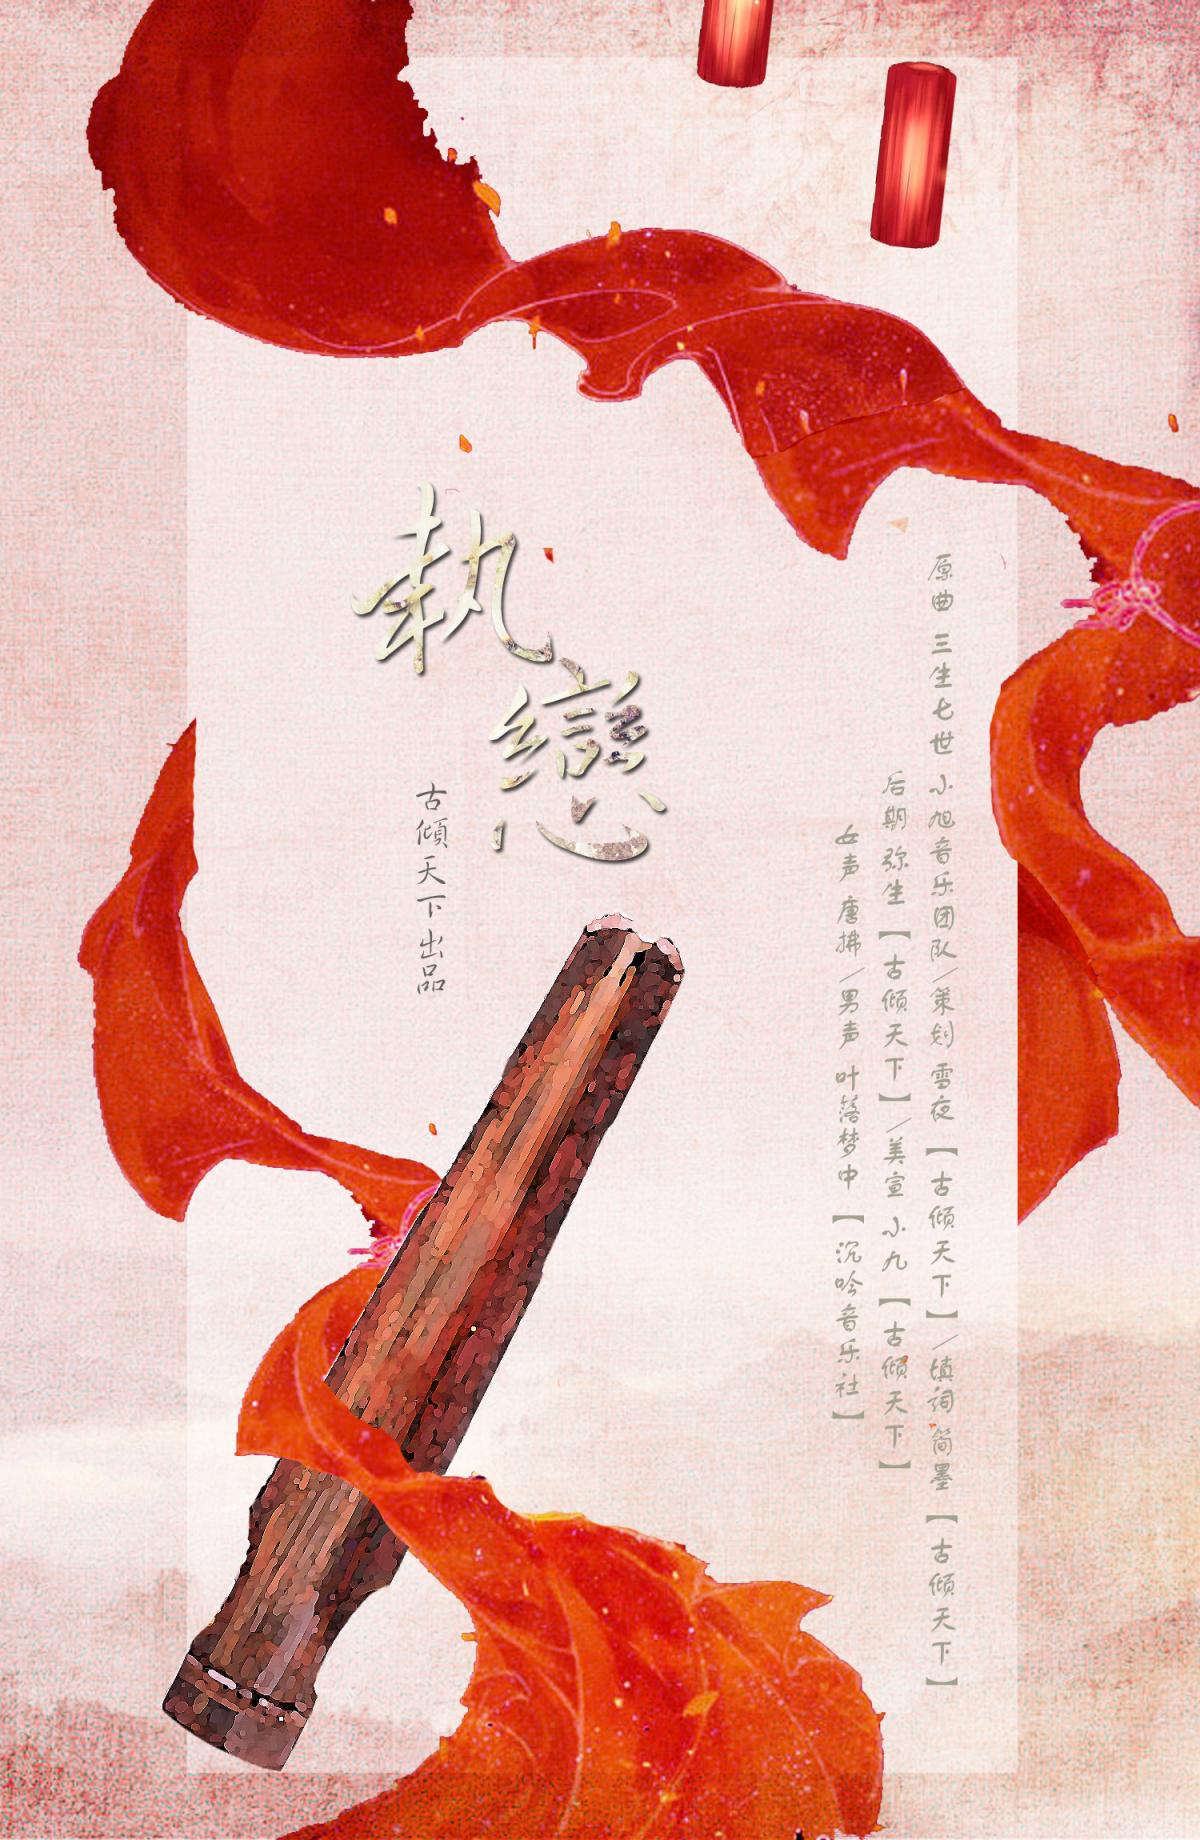 執戀
古傾天下出品
原曲 三生七世 小旭音乐团队／策划 雪夜【古倾天下】／填词 简墨【古倾天下】
后期 弥生【古倾天下】／美宣 小九【古倾天下】
女声 唐拂／男声 叶落梦中【沉吟音乐社】